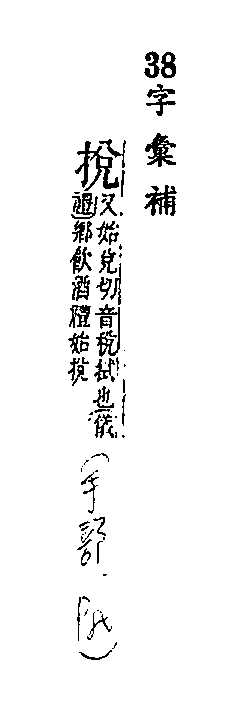 38字彙補
挩
又始兌切音稅拭也儀
禮鄉飲酒禮始挩
(手部